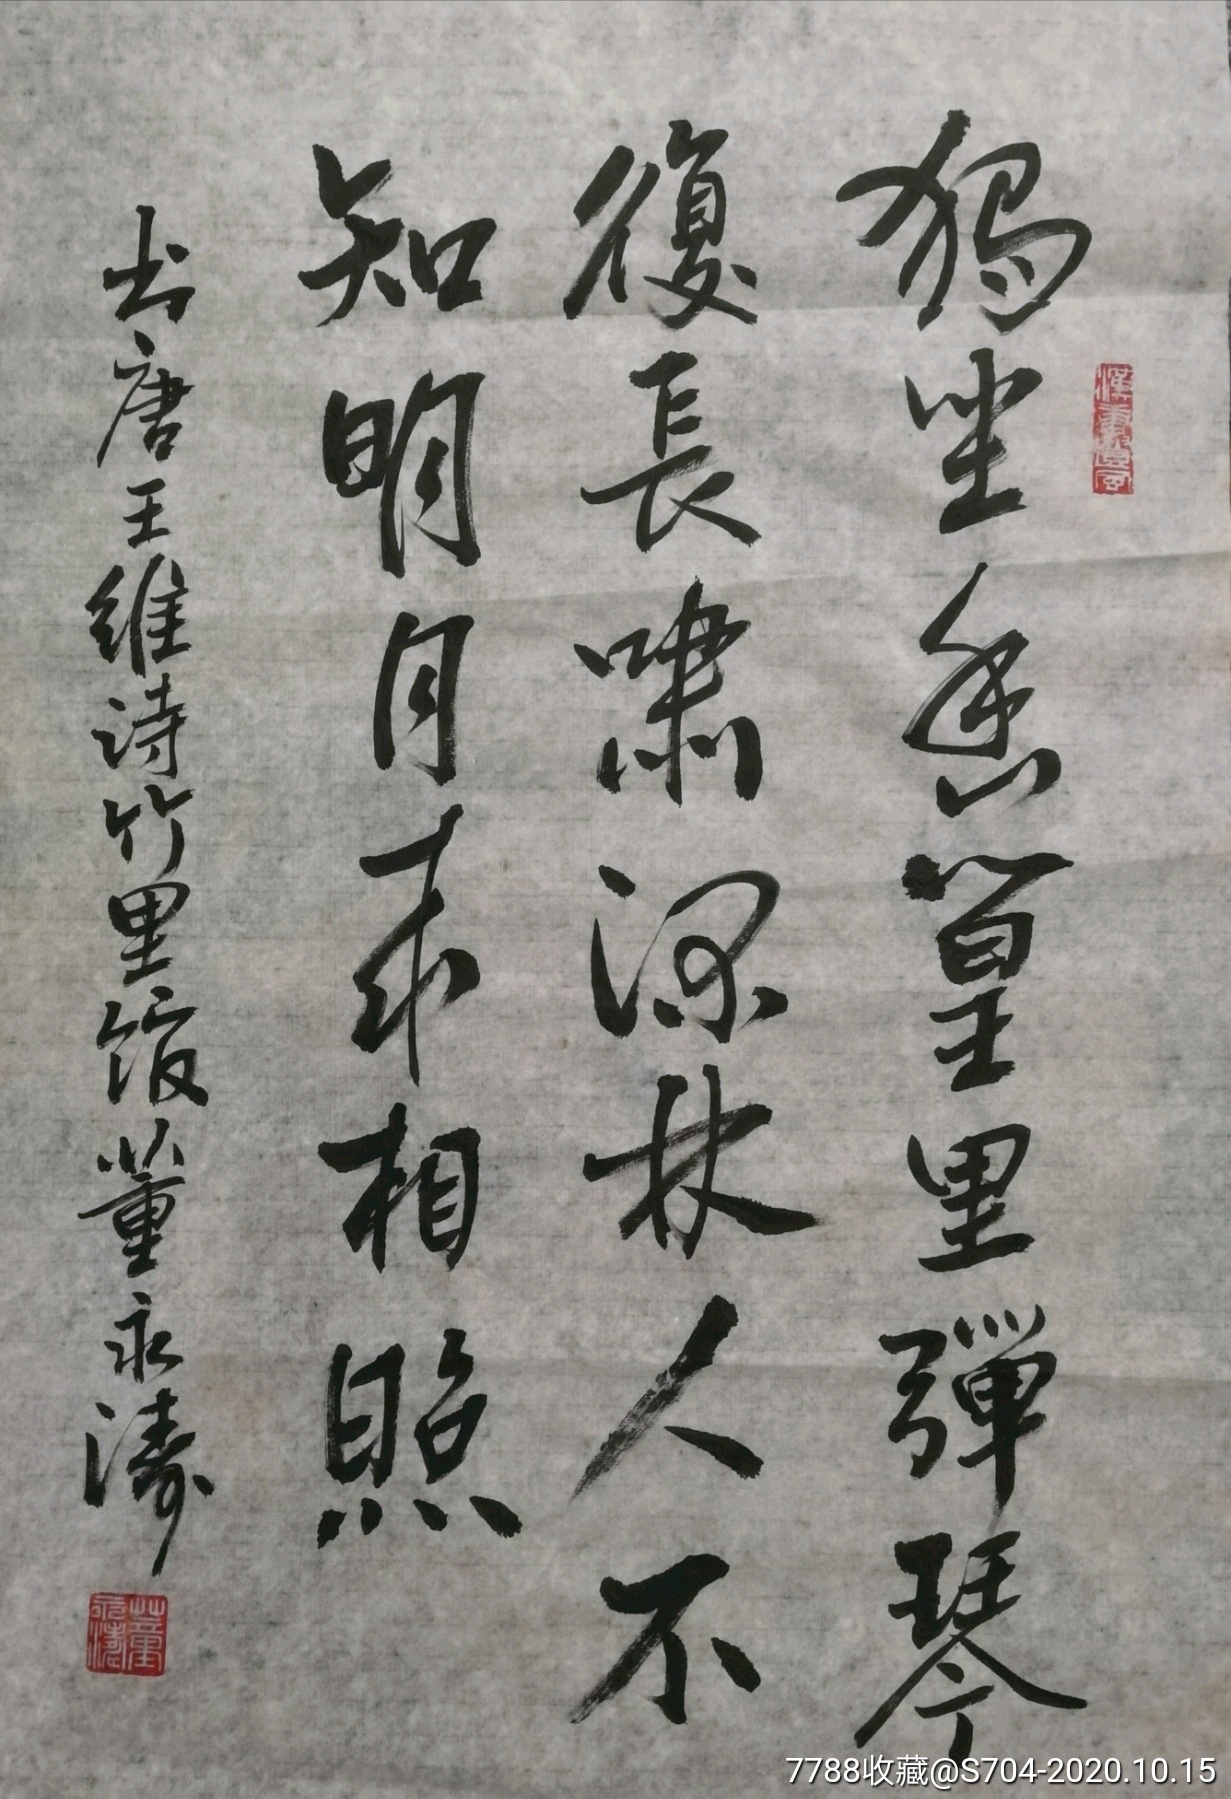 獨坐幽篁里彈琴
復長嘯深林人不
知明月来相照
书唐王维诗竹里馆董永涛
董永濤
7788收藏@S704-2020.10.15